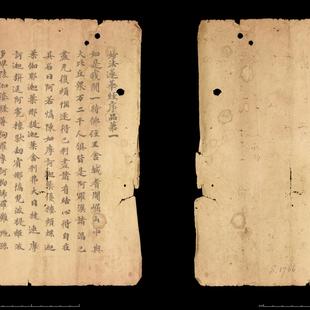 妙法蓮華經序品第一
如是我聞一時佛住王舍城耆闍崛山中與
大比丘眾万二千人俱皆是阿羅漢諸漏已
盡无復煩惱逮得己利盡諸有結心得自在
其名曰阿若憍陳如摩訶迦葉優樓頻螺迦
葉伽耶迦葉那提迦葉舍利弗大目揵連摩
訶迦旃延阿㝹樓馱劫賓那憍梵波提離婆
畢陵伽婆蹉薄拘羅摩訶拘絺羅難陀孫
S.1766